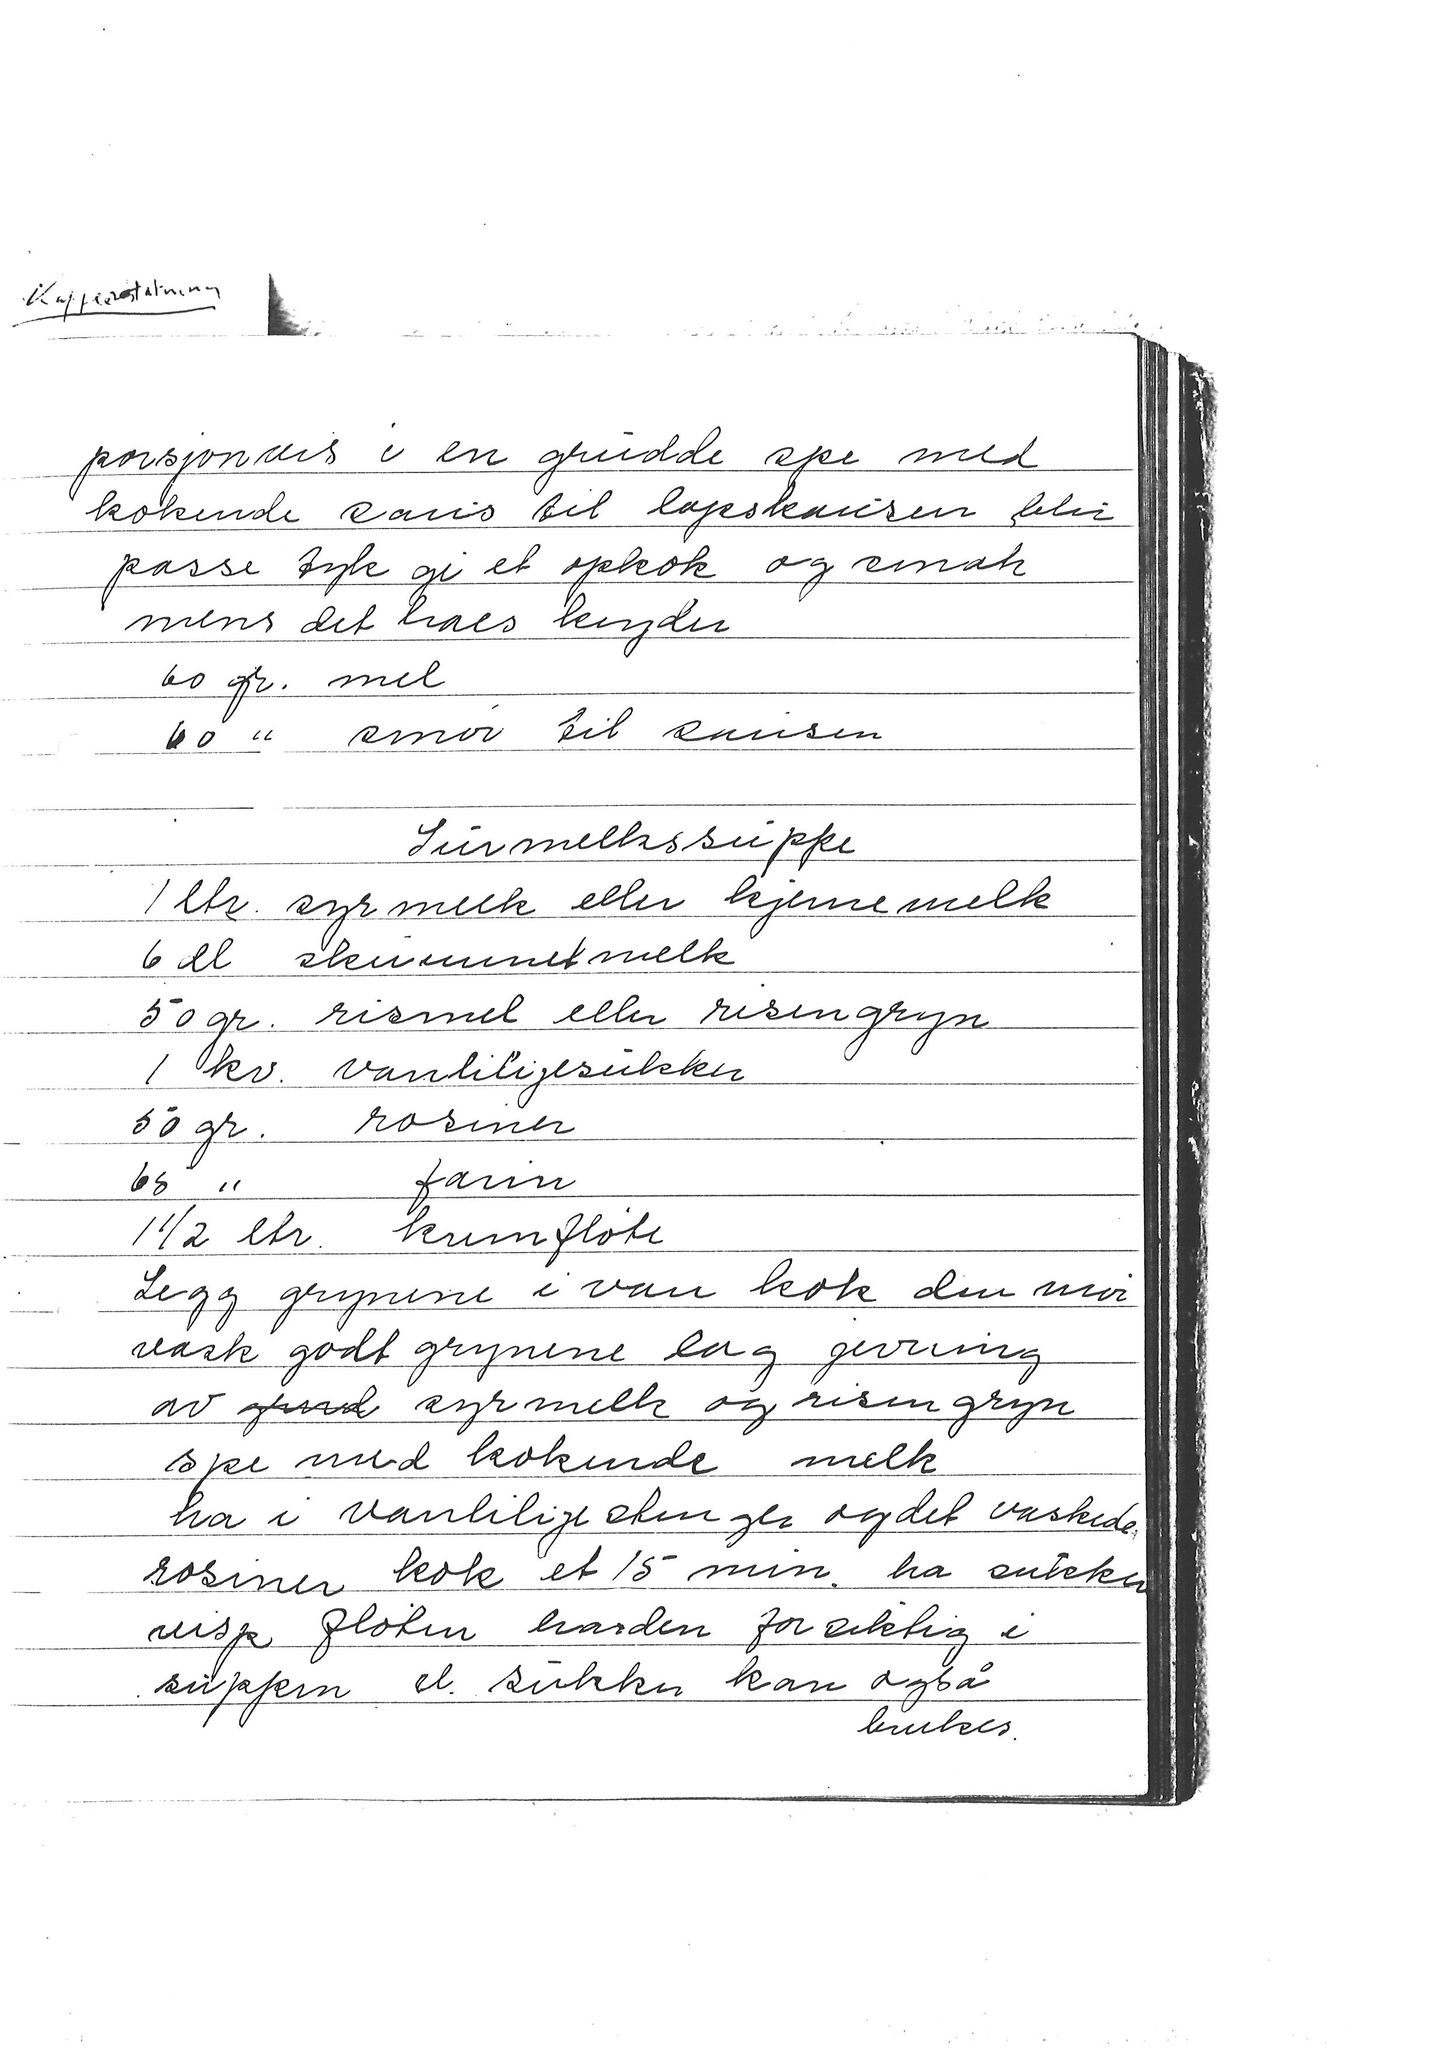 Kaffeerstatning
porsjonvis i en grudde spe med
kokende saus til lapskausen blir
passe tyk gi et opkok og smak
mens det haes krydder
60 gr. mel
60 " smør til sausen
Surmelkssuppe
1 ltr. syrmelk eller kjernemelk
6 dl skummetmelk
50 gr. rismel eller risengryn
1 kv. vanliligesukker
50 gr. rosiner
65 " farin
1 1/2 ltr. kremfløte
Legg grynene i van kok den mør
vask godt grynene lag jevning
av syrmelk og risengryn
spe med kokende melk
ha i vanlilige stenger og det vaskede
rosiner kok et 15 min. ha sukker
visp fløten haes den forsiktig i
suppen el. sukker kan også
brukes.